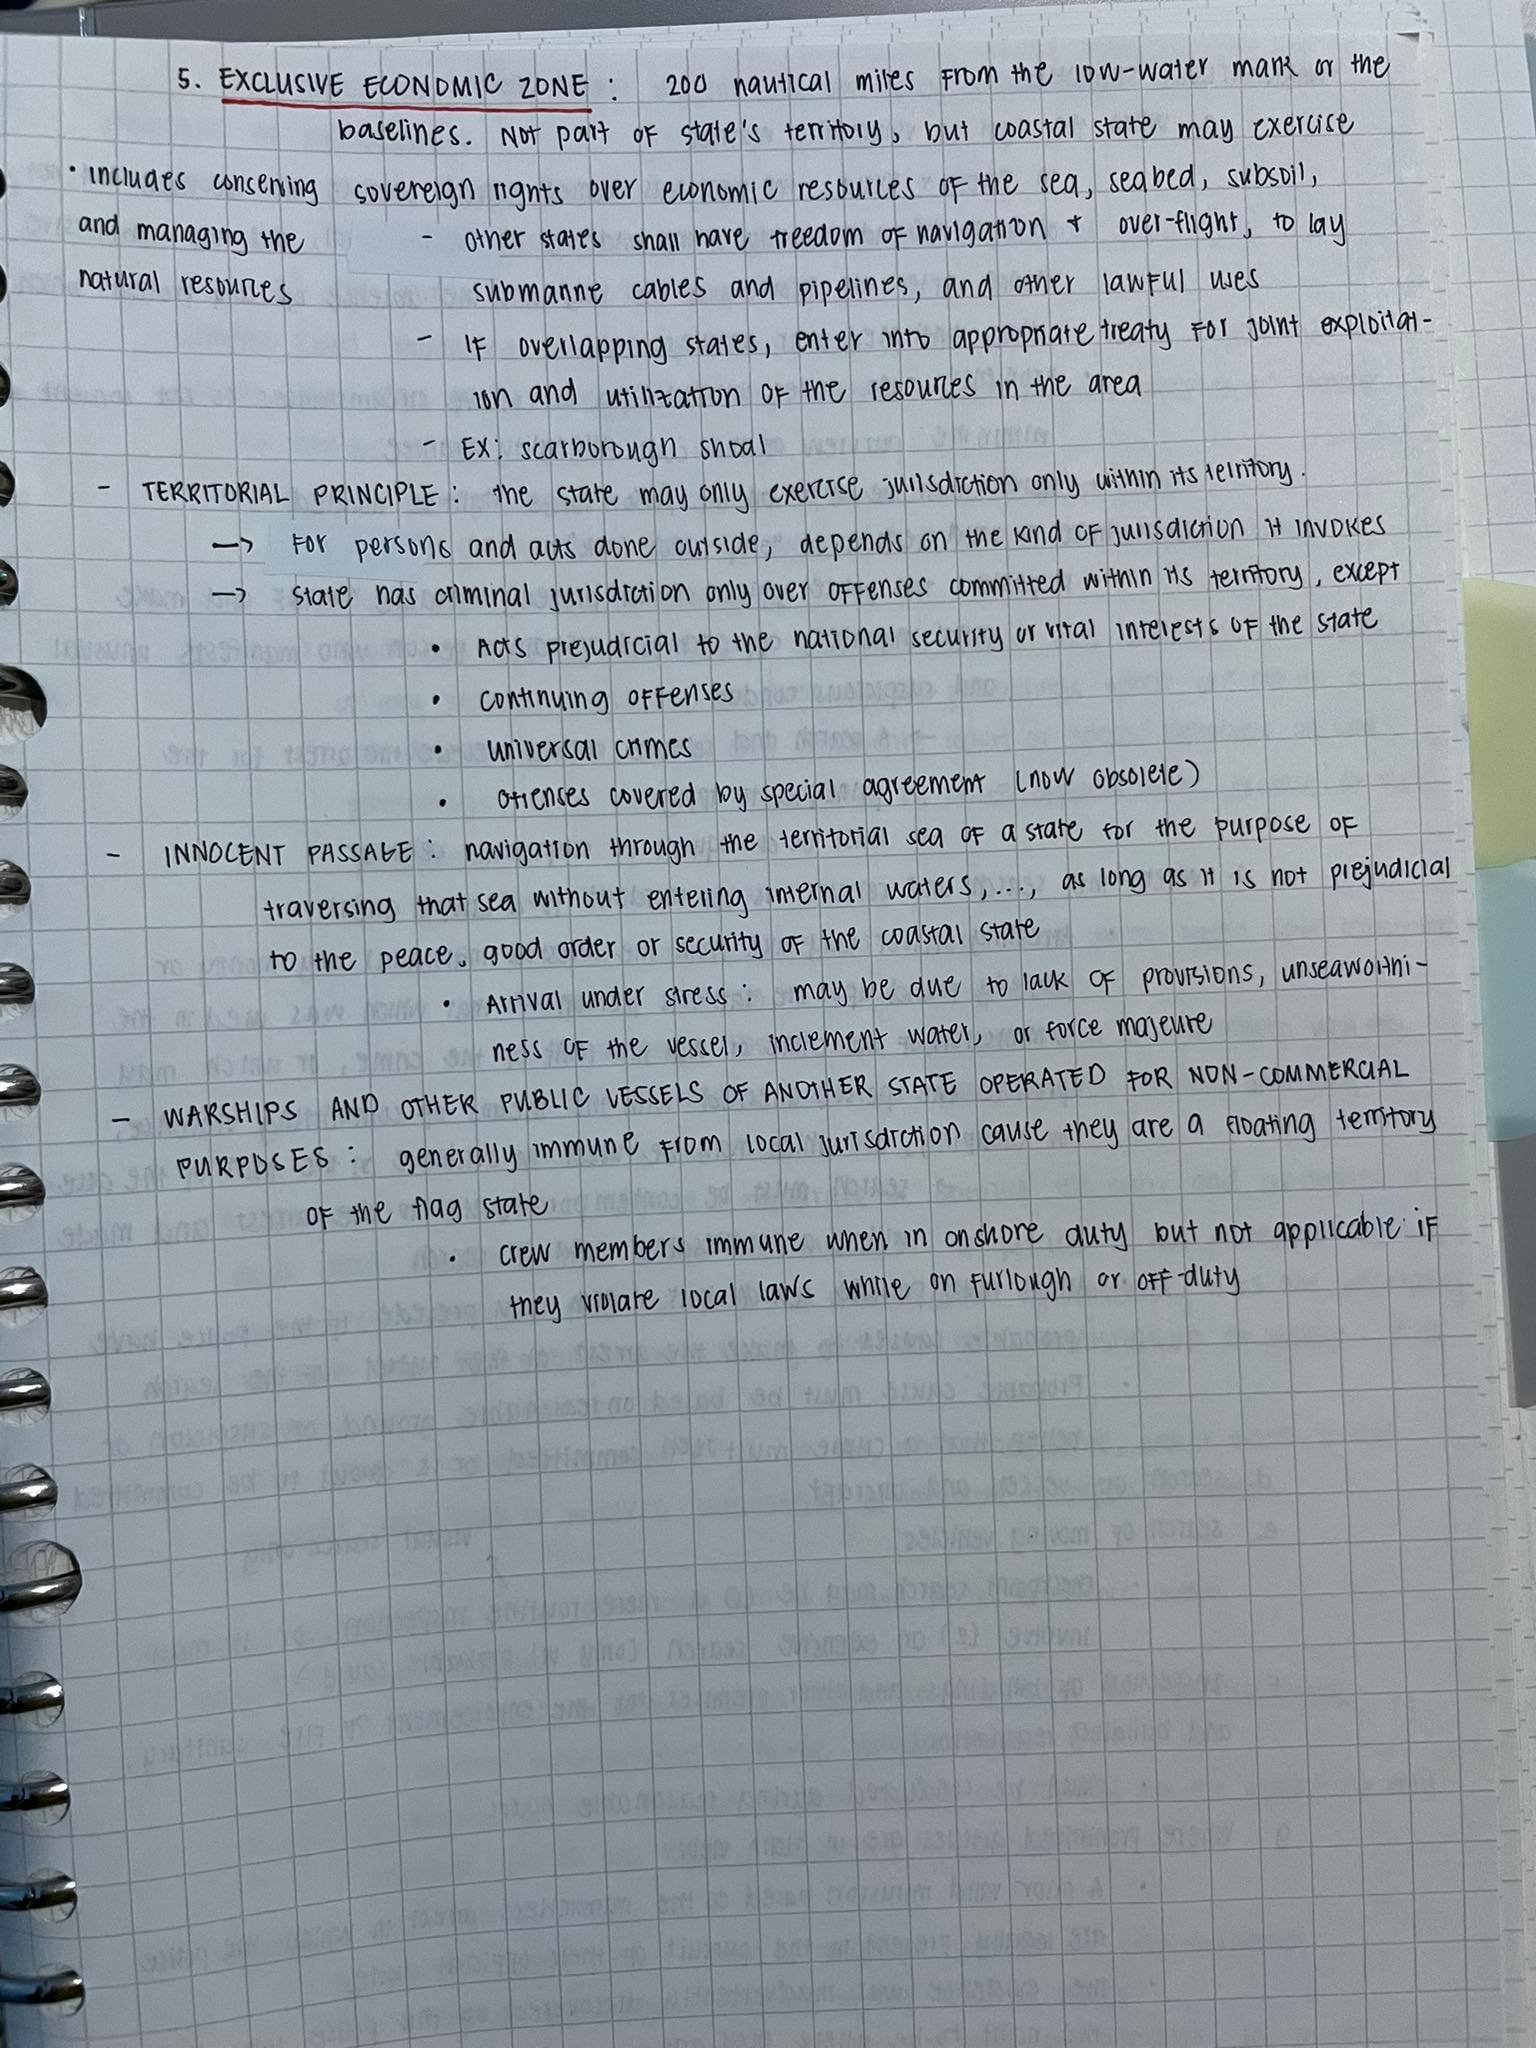 5. EXCLUSIVE ECONOMIC ZONE : 200 nautical miles from the low-water mark or the
baselines. Not part of state's territory, but coastal state may exercise
• includes conserving
and managing the
natural resources
sovereign rights over economic resources of the sea, seabed, subsoil,
- other states shall have freedom of navigation + over-flight, to lay
submarine cables and pipelines, and other lawful uses
- If overlapping states, enter into appropriate treaty for joint exploitat-
ion and utilization of the resources in the area
- Ex: scarborough shoal
- TERRITORIAL PRINCIPLE : the state may only exercise jurisdiction only within its territory.
→ For persons and acts done outside, depends on the kind of jurisdiction it invokes
→ state has criminal jurisdiction only over offenses committed within its territory, except
• Acts prejudicial to the national security or vital interests of the state
• continuing offenses
• universal crimes
• offenses covered by special agreement (now obsolete)
- INNOCENT PASSAGE : navigation through the territorial sea of a state for the purpose of
traversing that sea without entering internal waters, ..., as long as it is not prejudicial
to the peace, good order or security of the coastal state
• Arrival under stress : may be due to lack of provisions, unseaworthi-
ness of the vessel, inclement water, or force majeure
- WARSHIPS AND OTHER PUBLIC VESSELS OF ANOTHER STATE OPERATED FOR NON-COMMERCIAL
PURPOSES : generally immune from local jurisdiction cause they are a floating territory
of the flag state
• crew members immune when in onshore duty but not applicable if
they violate local laws while on furlough or off-duty